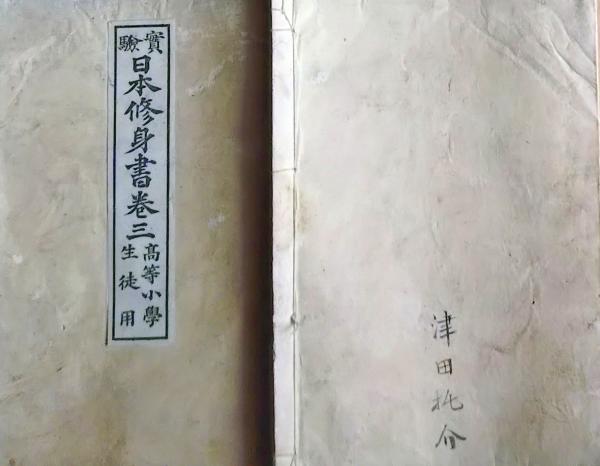 實驗
日本修身書卷三
高等小學
生徒用
津田托介